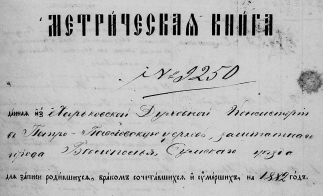 МЕТРИЧЕСКАЯ КНИГА
№ 2250
данная из Харьковской Духовной Консисторіи
въ Петро-Павловскую церковь, заштатнаго
города Бѣлополья, Сумскаго уѣзда
для записи родившихся, бракомъ сочетавшихся и умершихъ, на 1882 годъ.